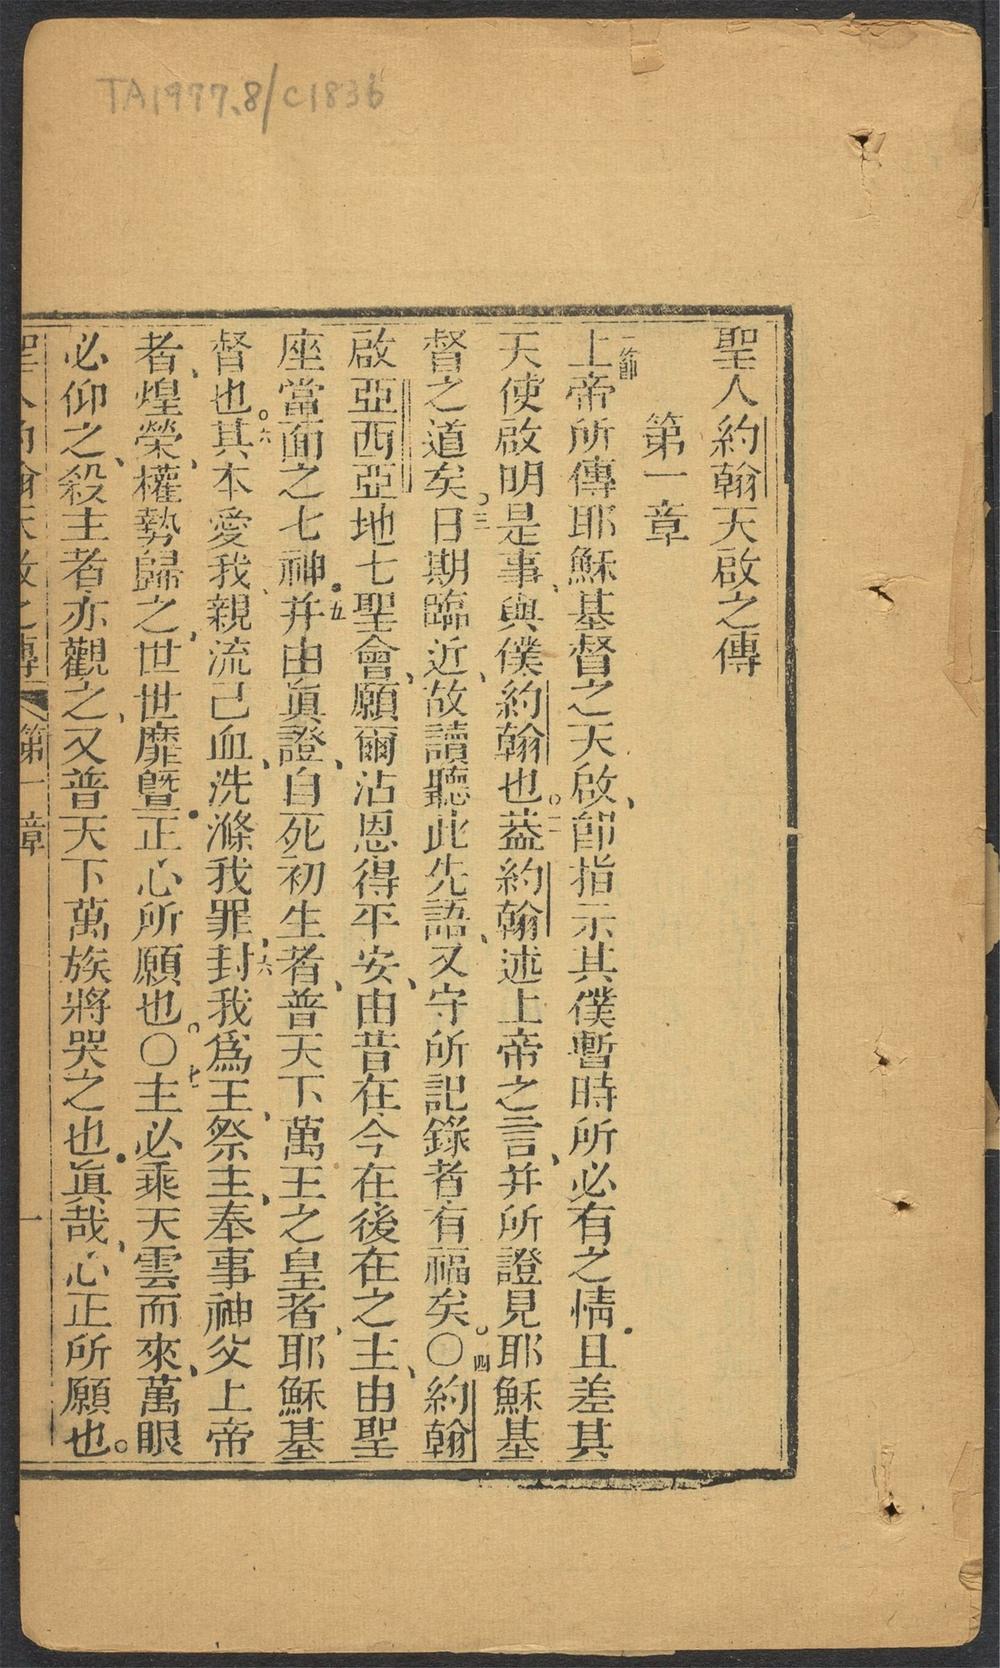 TA1977.8/C1836
聖人約翰天啟之傳
第一章
一節
上帝所傳耶穌基督之天啟、卽指示其僕暫時所必有之情．且差其
天使啟明是事、與僕約翰也。二蓋約翰述上帝之言、并所證見耶穌基
督之道矣。三日期臨近、故讀聽此先語、又守所記錄者有福矣。〇四約翰
啟亞西亞地七聖會、願爾沾恩得平安、由昔在今在後在之主、由聖
座當面之七神．五并由眞證、自死初生者、普天下萬王之皇者、耶穌基
督也。六其本愛我、親流己血、洗滌我罪、六封我爲王、祭主、奉事神父上帝
者、煌榮、權勢歸之、世世靡曁．正心所願也。〇七主必乘天雲而來、萬眼
必仰之、殺主者亦觀之、又普天下萬族將哭之也．眞哉、心正所願也。
聖人約翰天啟之傳 第一章 一